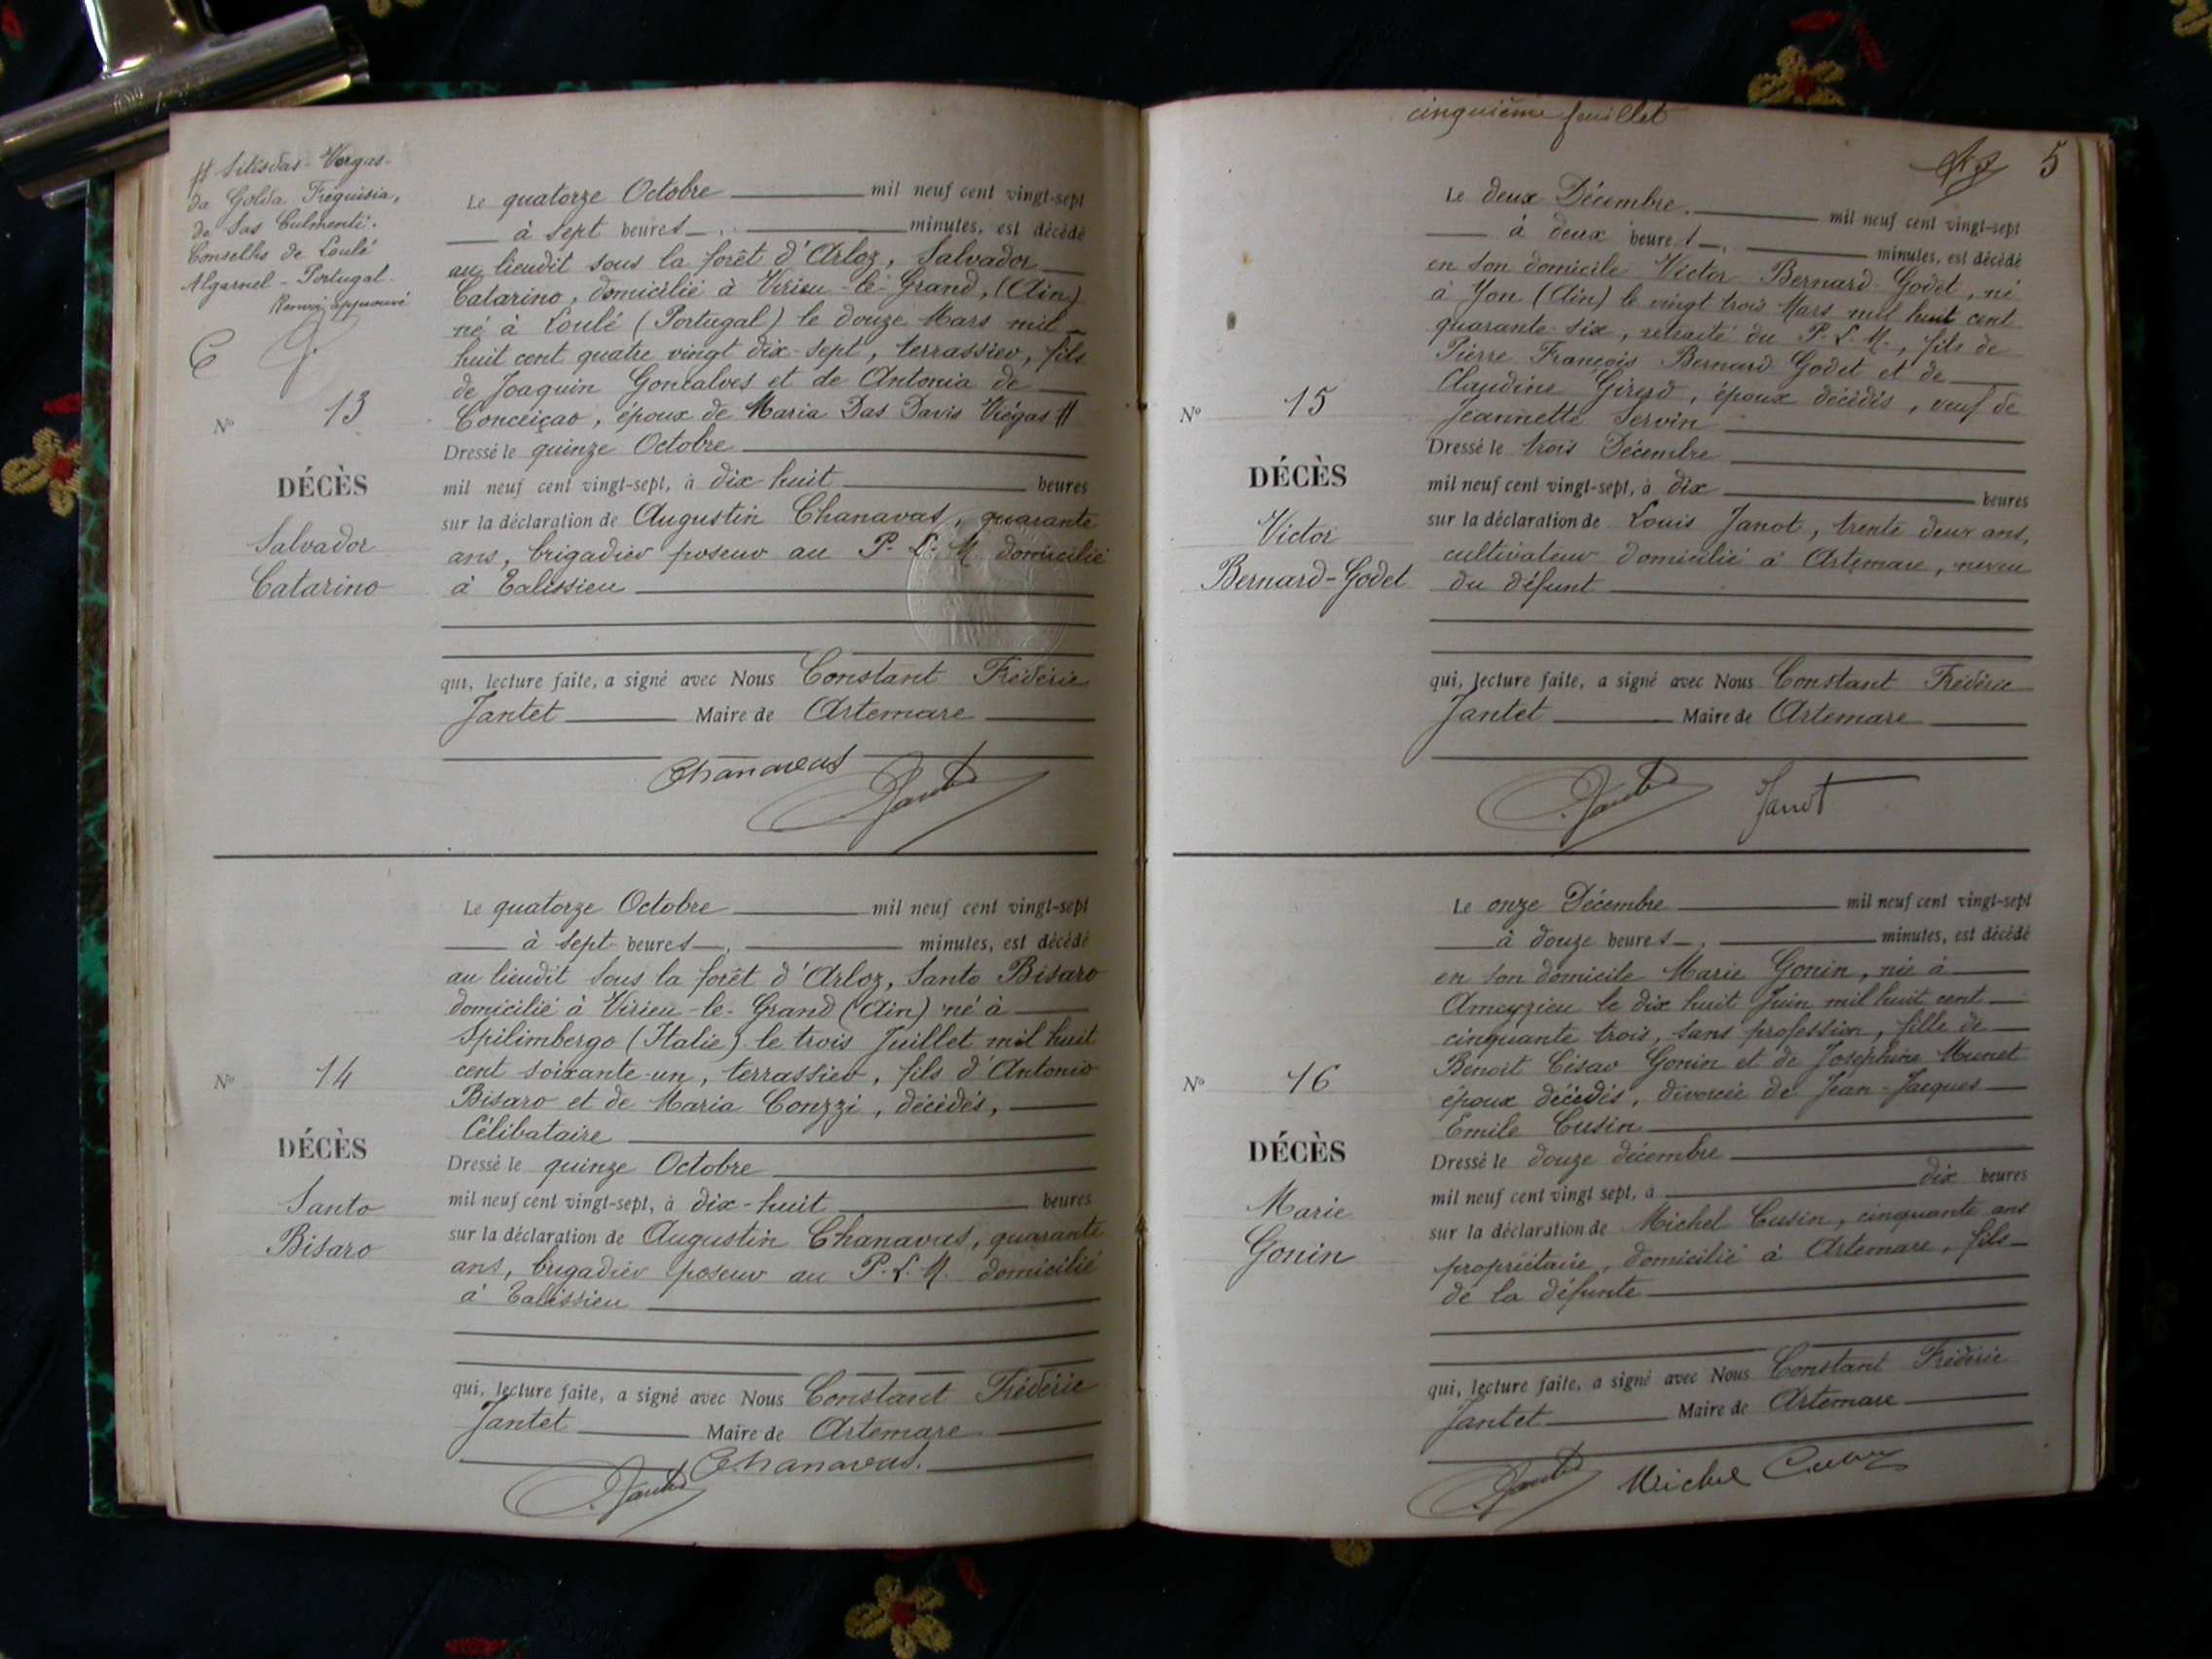 # Sitisdas-Vargas-
da Golda Fréquisia,
de Sas Culmenti.
Conselhs de Loulé
Algarnel - Portugal.
Renvoi approuvé
Nº 13
DÉCÈS
Salvador
Catarino
Le quatorze Octobre mil neuf cent vingt-sept
à sept heures, minutes, est décédé
au lieudit sous la forêt d'Arloz, Salvador
Catarino, domicilié à Virieu-le-Grand, (Ain)
né à Loulé (Portugal) le douze Mars mil
huit cent quatre vingt dix-sept, terrassier, fils
de Joaquin Goncalves et de Antonia de
Conceiçao, époux de Maria Das Davis Viégas #
Dressé le quinze Octobre
mil neuf cent vingt-sept, à dix huit heures
sur la déclaration de Augustin Chanavas, quarante
ans, brigadier poseur au P. L. M domicilié
à Talissieu
qui, lecture faite, a signé avec Nous Constant Frédéric
Jantet Maire de Artemare
Chanavas
Jantet
Nº 14
DÉCÈS
Santo
Bisaro
Le quatorze Octobre mil neuf cent vingt-sept
à sept heures, minutes, est décédé
au lieudit sous la forêt d'Arloz, Santo Bisaro
domicilié à Virieu-le-Grand (Ain) né à
Spilimbergo (Italie) le trois Juillet mil huit
cent soixante-un, terrassier, fils d'Antonio
Bisaro et de Maria Conzzi, décédés,
Célibataire
Dressé le quinze Octobre
mil neuf cent vingt-sept, à dix-huit heures
sur la déclaration de Augustin Chanavas, quarante
ans, brigadier poseur au P. L. M. domicilié
à Talissieu
qui, lecture faite, a signé avec Nous Constant Frédéric
Jantet Maire de Artemare
Chanavas.
Jantet
cinquième feuillet
5
Nº 15
DÉCÈS
Victor
Bernard-Godet
Le deux Décembre. mil neuf cent vingt-sept
à deux heures, minutes, est décédé
en son domicile Victor Bernard-Godet, né
à Yon (Ain) le vingt trois Mars mil huit cent
quarante-six, retraité du P. L. M., fils de
Pierre François Bernard Godet et de
Claudine Girerd, époux décédés, veuf de
Jeannette Servin
Dressé le trois Décembre
mil neuf cent vingt-sept, à dix heures
sur la déclaration de Louis Janot, trente deux ans,
cultivateur domicilié à Artemare, neveu
du défunt
qui, lecture faite, a signé avec Nous Constant Frédéric
Jantet Maire de Artemare
Jantet Janot
Nº 16
DÉCÈS
Marie
Gonin
Le onze Décembre mil neuf cent vingt-sept
à douze heures, minutes, est décédé
en son domicile Marie Gonin, née à
Ameyzieu le dix huit Juin mil huit cent
cinquante trois, sans profession, fille de
Benoit César Gonin et de Joséphine Munet
époux décédés, divorcée de Jean-Jacques
Emile Cusin
Dressé le douze décembre
mil neuf cent vingt sept, à dix heures
sur la déclaration de Michel Cusin, cinquante ans
propriétaire, domicilié à Artemare, fils
de la défunte
qui, lecture faite, a signé avec Nous Constant Frédéric
Jantet Maire de Artemare
Jantet Michel Cusin